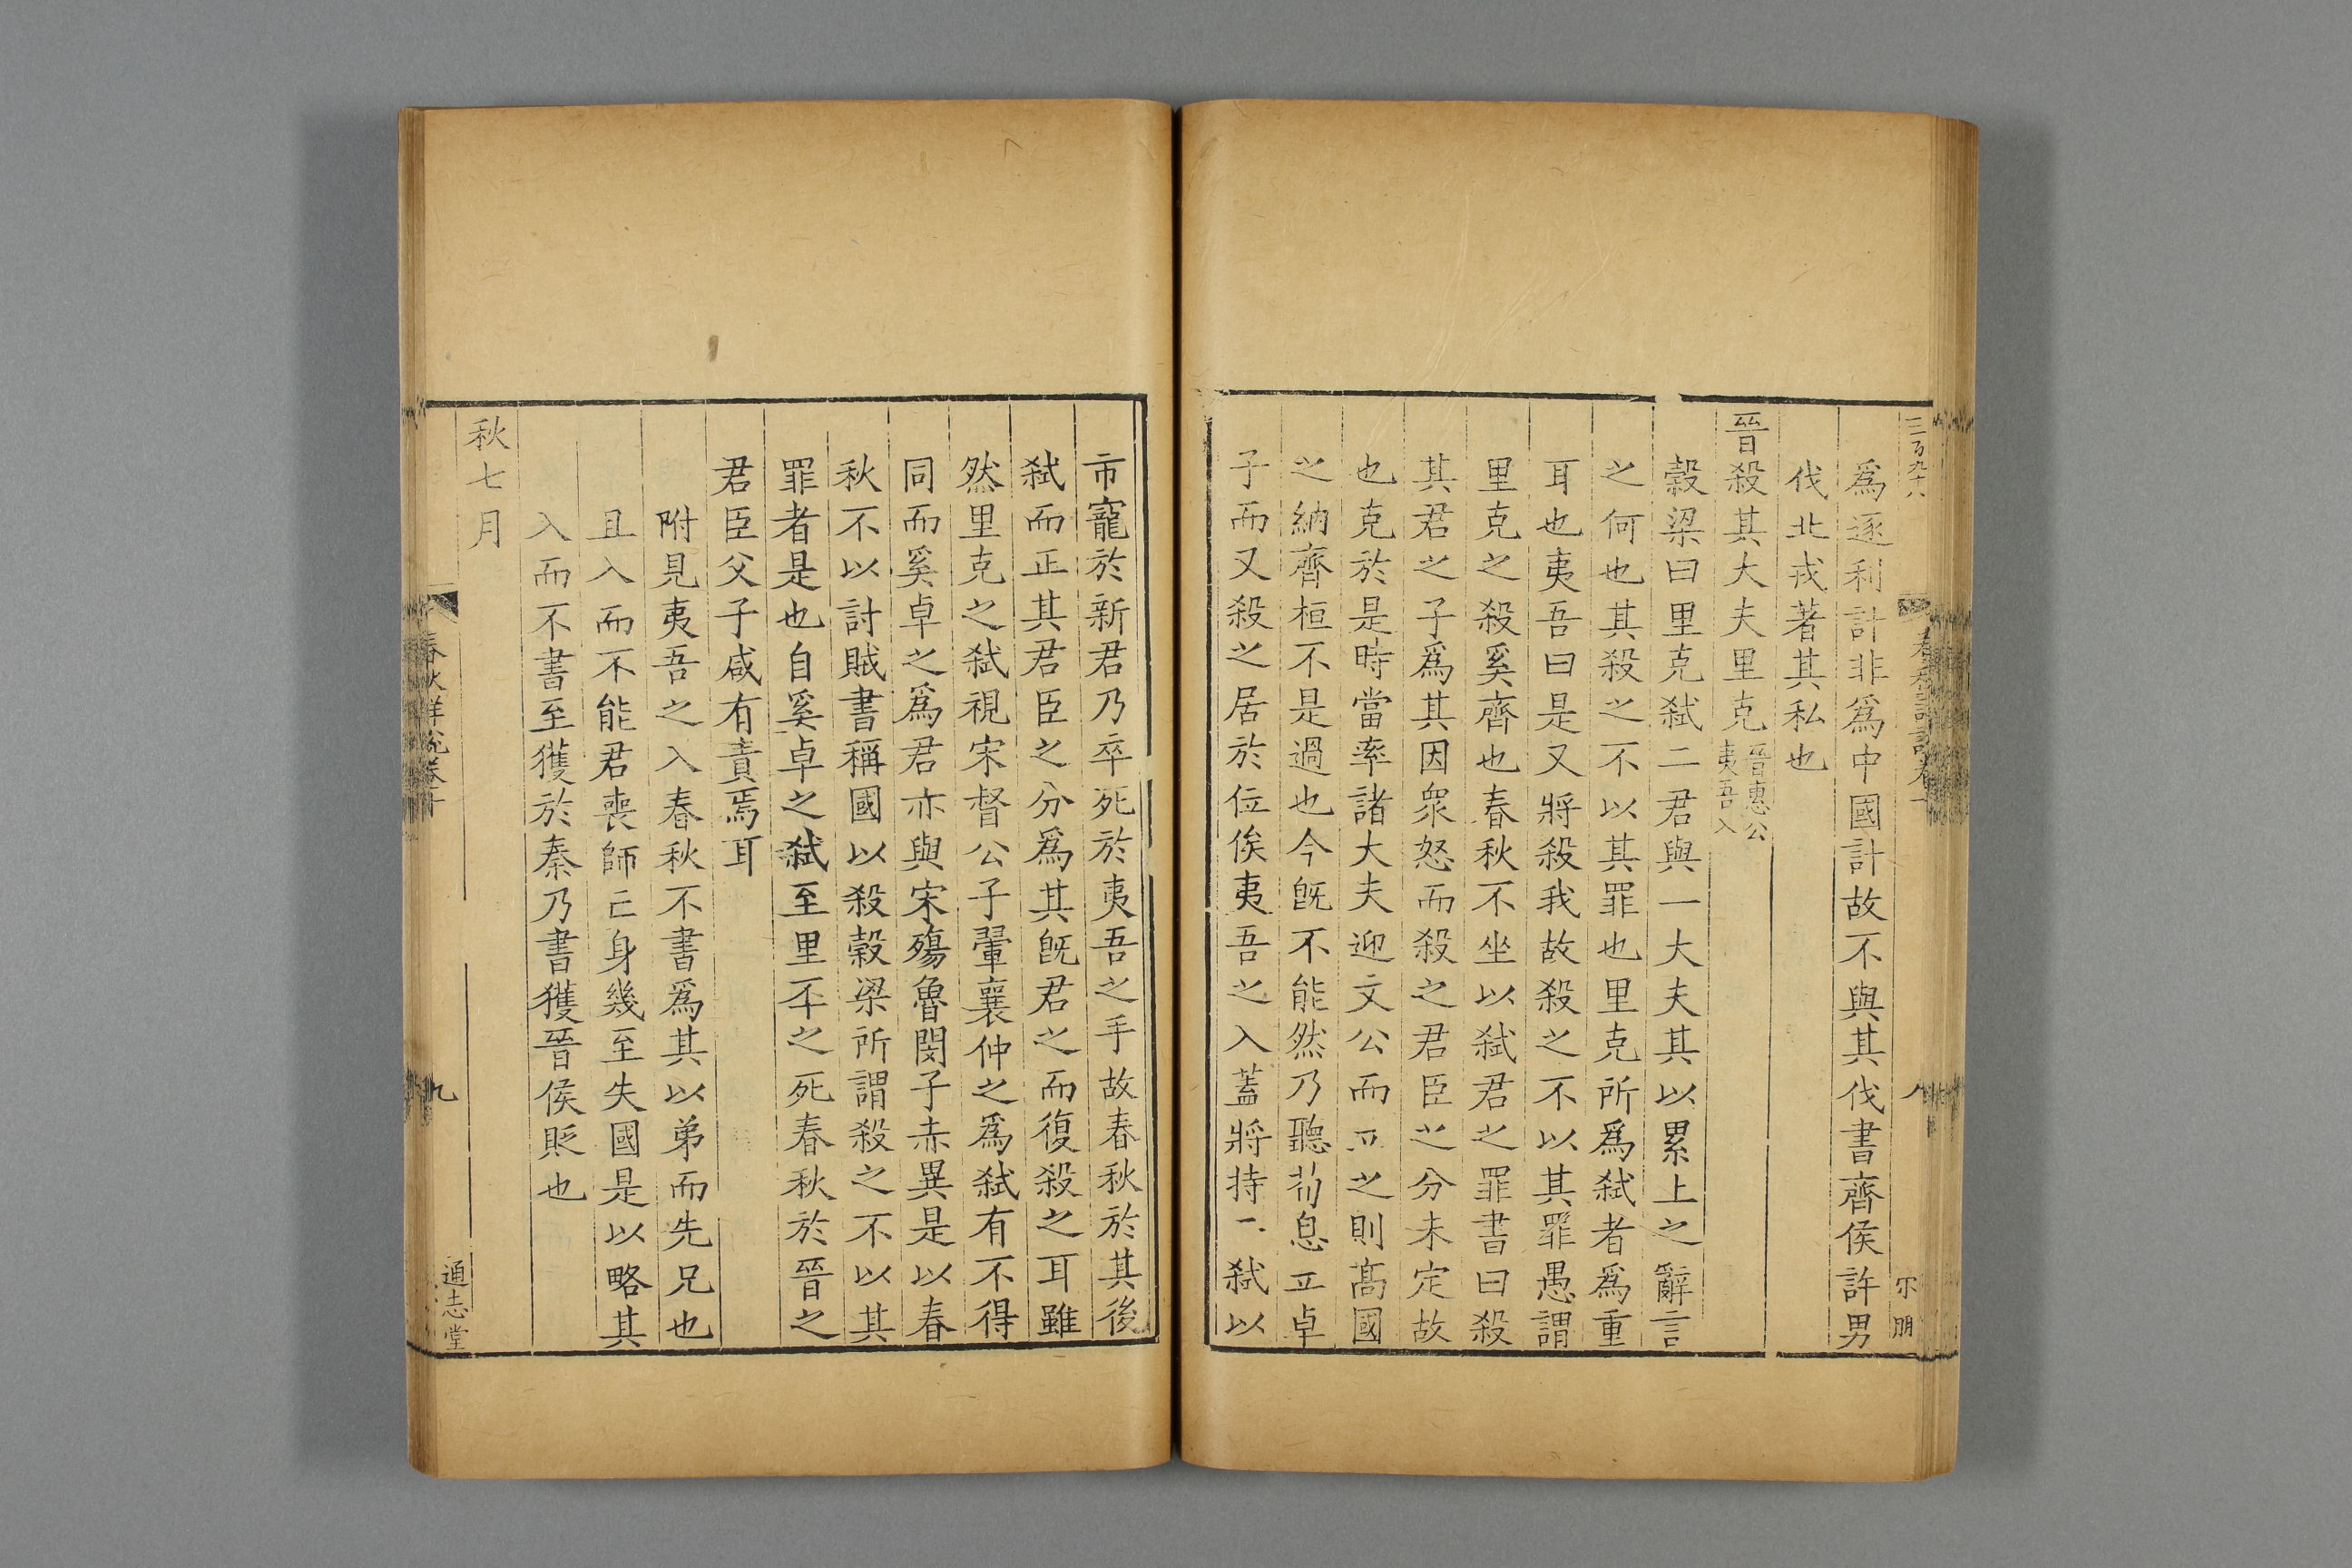 三百九十八
為逐利計非為中國計故不與其伐書齊侯許男
伐北戎著其私也
晉殺其大夫里克晉惠公夷吾入
穀梁曰里克弑二君與一大夫其以累上之辭言
之何也其殺之不以其罪也里克所為弑者為重
耳也夷吾曰是又將殺我故殺之不以其罪愚謂
里克之殺奚齊也春秋不坐以弑君之罪書曰殺
其君之子為其因衆怒而殺之君臣之分未定故
也克於是時當率諸大夫迎文公而立之則髙國
之納齊桓不是過也今旣不能然乃聽荀息立卓
子而又殺之居於位俟夷吾之入蓋將持二弑以
市寵於新君乃卒死於夷吾之手故春秋於其後
弑而正其君臣之分為其旣君之而復殺之耳雖
然里克之弑視宋督公子翬襄仲之為弑有不得
同而奚卓之為君亦與宋殤魯閔子赤異是以春
秋不以討賊書稱國以殺穀梁所謂殺之不以其
罪者是也自奚卓之弑至里丕之死春秋於晉之
君臣父子咸有責焉耳
附見夷吾之入春秋不書為其以弟而先兄也
且入而不能君喪師亡身幾至失國是以略其
入而不書至獲於秦乃書獲晉侯貶也
秋七月
春秋詳說卷十
九
通志堂